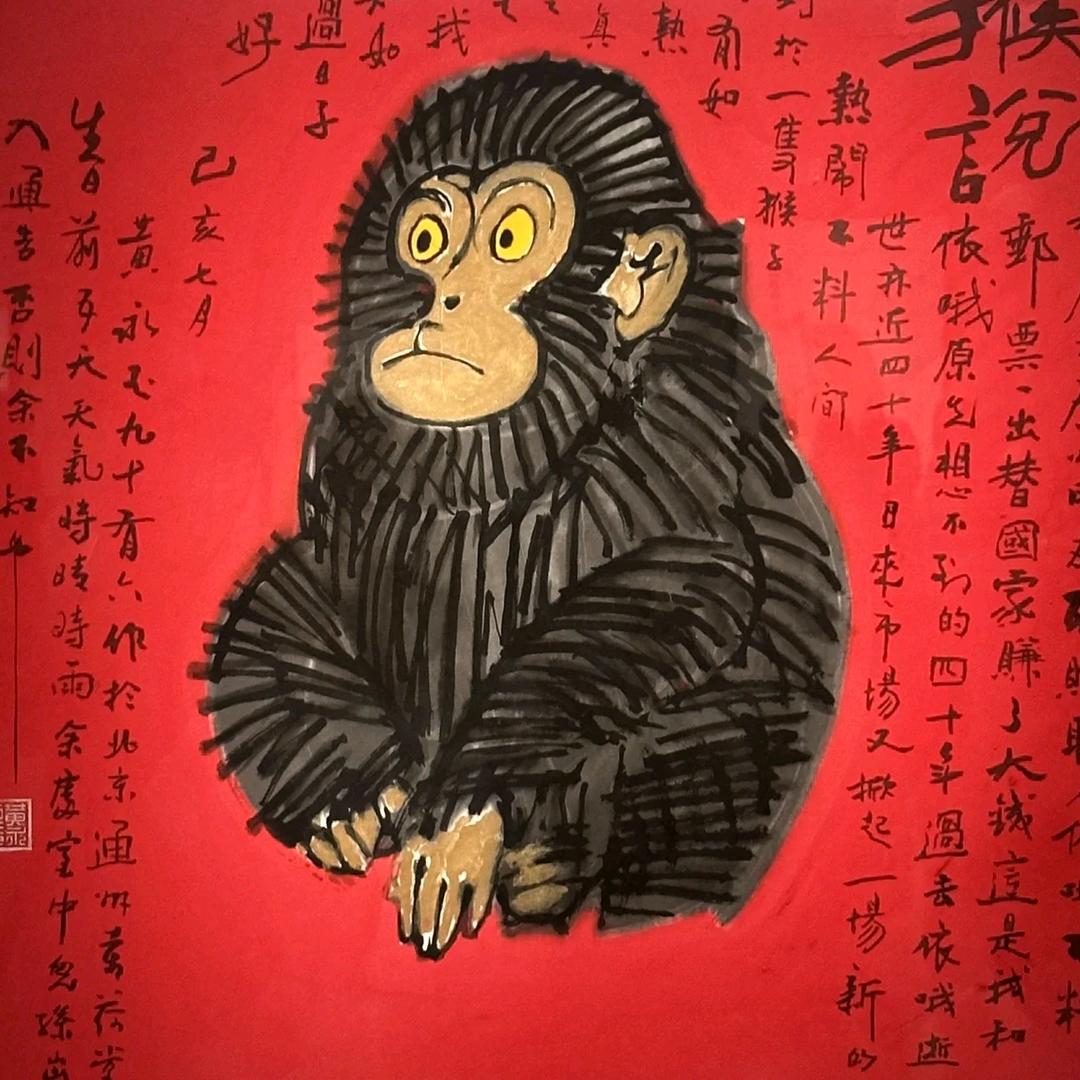 猴說
郵票一出替國家賺了大錢這是我和
依哦原先想不到的四十年過去依哦逝
世亦近四十年日來市場又掀起一場新的
熱鬧不料人間
於一隻猴子
有如
熱
真
我
如
過日子
好
己亥七月
黃永玉九十有六作於北京通州萬荷堂
生日前五天天氣時晴時雨余處室中忽孫
入通告否則余不知也